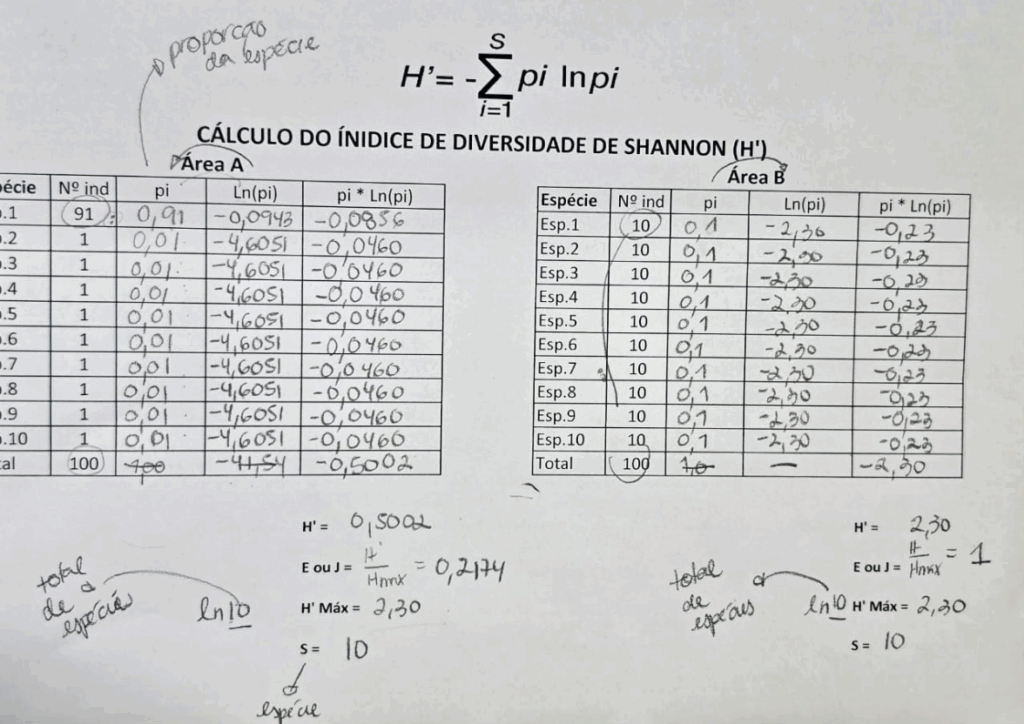 proporção
da espécie
H'= -∑ pi ln pi
S
i=1
CÁLCULO DO ÍNIDICE DE DIVERSIDADE DE SHANNON (H')
Área A
pécie Nº ind pi Ln(pi) pi * Ln(pi)
p.1 91 0,91 -0,0943 -0,0856
p.2 1 0,01 -4,6051 -0,0460
p.3 1 0,01 -4,6051 -0,0460
p.4 1 0,01 -4,6051 -0,0460
p.5 1 0,01 -4,6051 -0,0460
p.6 1 0,01 -4,6051 -0,0460
p.7 1 0,01 -4,6051 -0,0460
p.8 1 0,01 -4,6051 -0,0460
p.9 1 0,01 -4,6051 -0,0460
p.10 1 0,01 -4,6051 -0,0460
tal 100 100 -41,54 -0,5002
Área B
Espécie Nº ind pi Ln(pi) pi * Ln(pi)
Esp.1 10 0,1 -2,30 -0,23
Esp.2 10 0,1 -2,30 -0,23
Esp.3 10 0,1 -2,30 -0,23
Esp.4 10 0,1 -2,30 -0,23
Esp.5 10 0,1 -2,30 -0,23
Esp.6 10 0,1 -2,30 -0,23
Esp.7 10 0,1 -2,30 -0,23
Esp.8 10 0,1 -2,30 -0,23
Esp.9 10 0,1 -2,30 -0,23
Esp.10 10 0,1 -2,30 -0,23
Total 100 10 — -2,30
H' = 0,5002
E ou J = H'/Hmx = 0,2174
H' Máx = 2,30
S = 10
total
de
espécies
ln10
espécie
H' = 2,30
E ou J = H/Hmx = 1
H' Máx = 2,30
S = 10
total
de
espécies
ln10